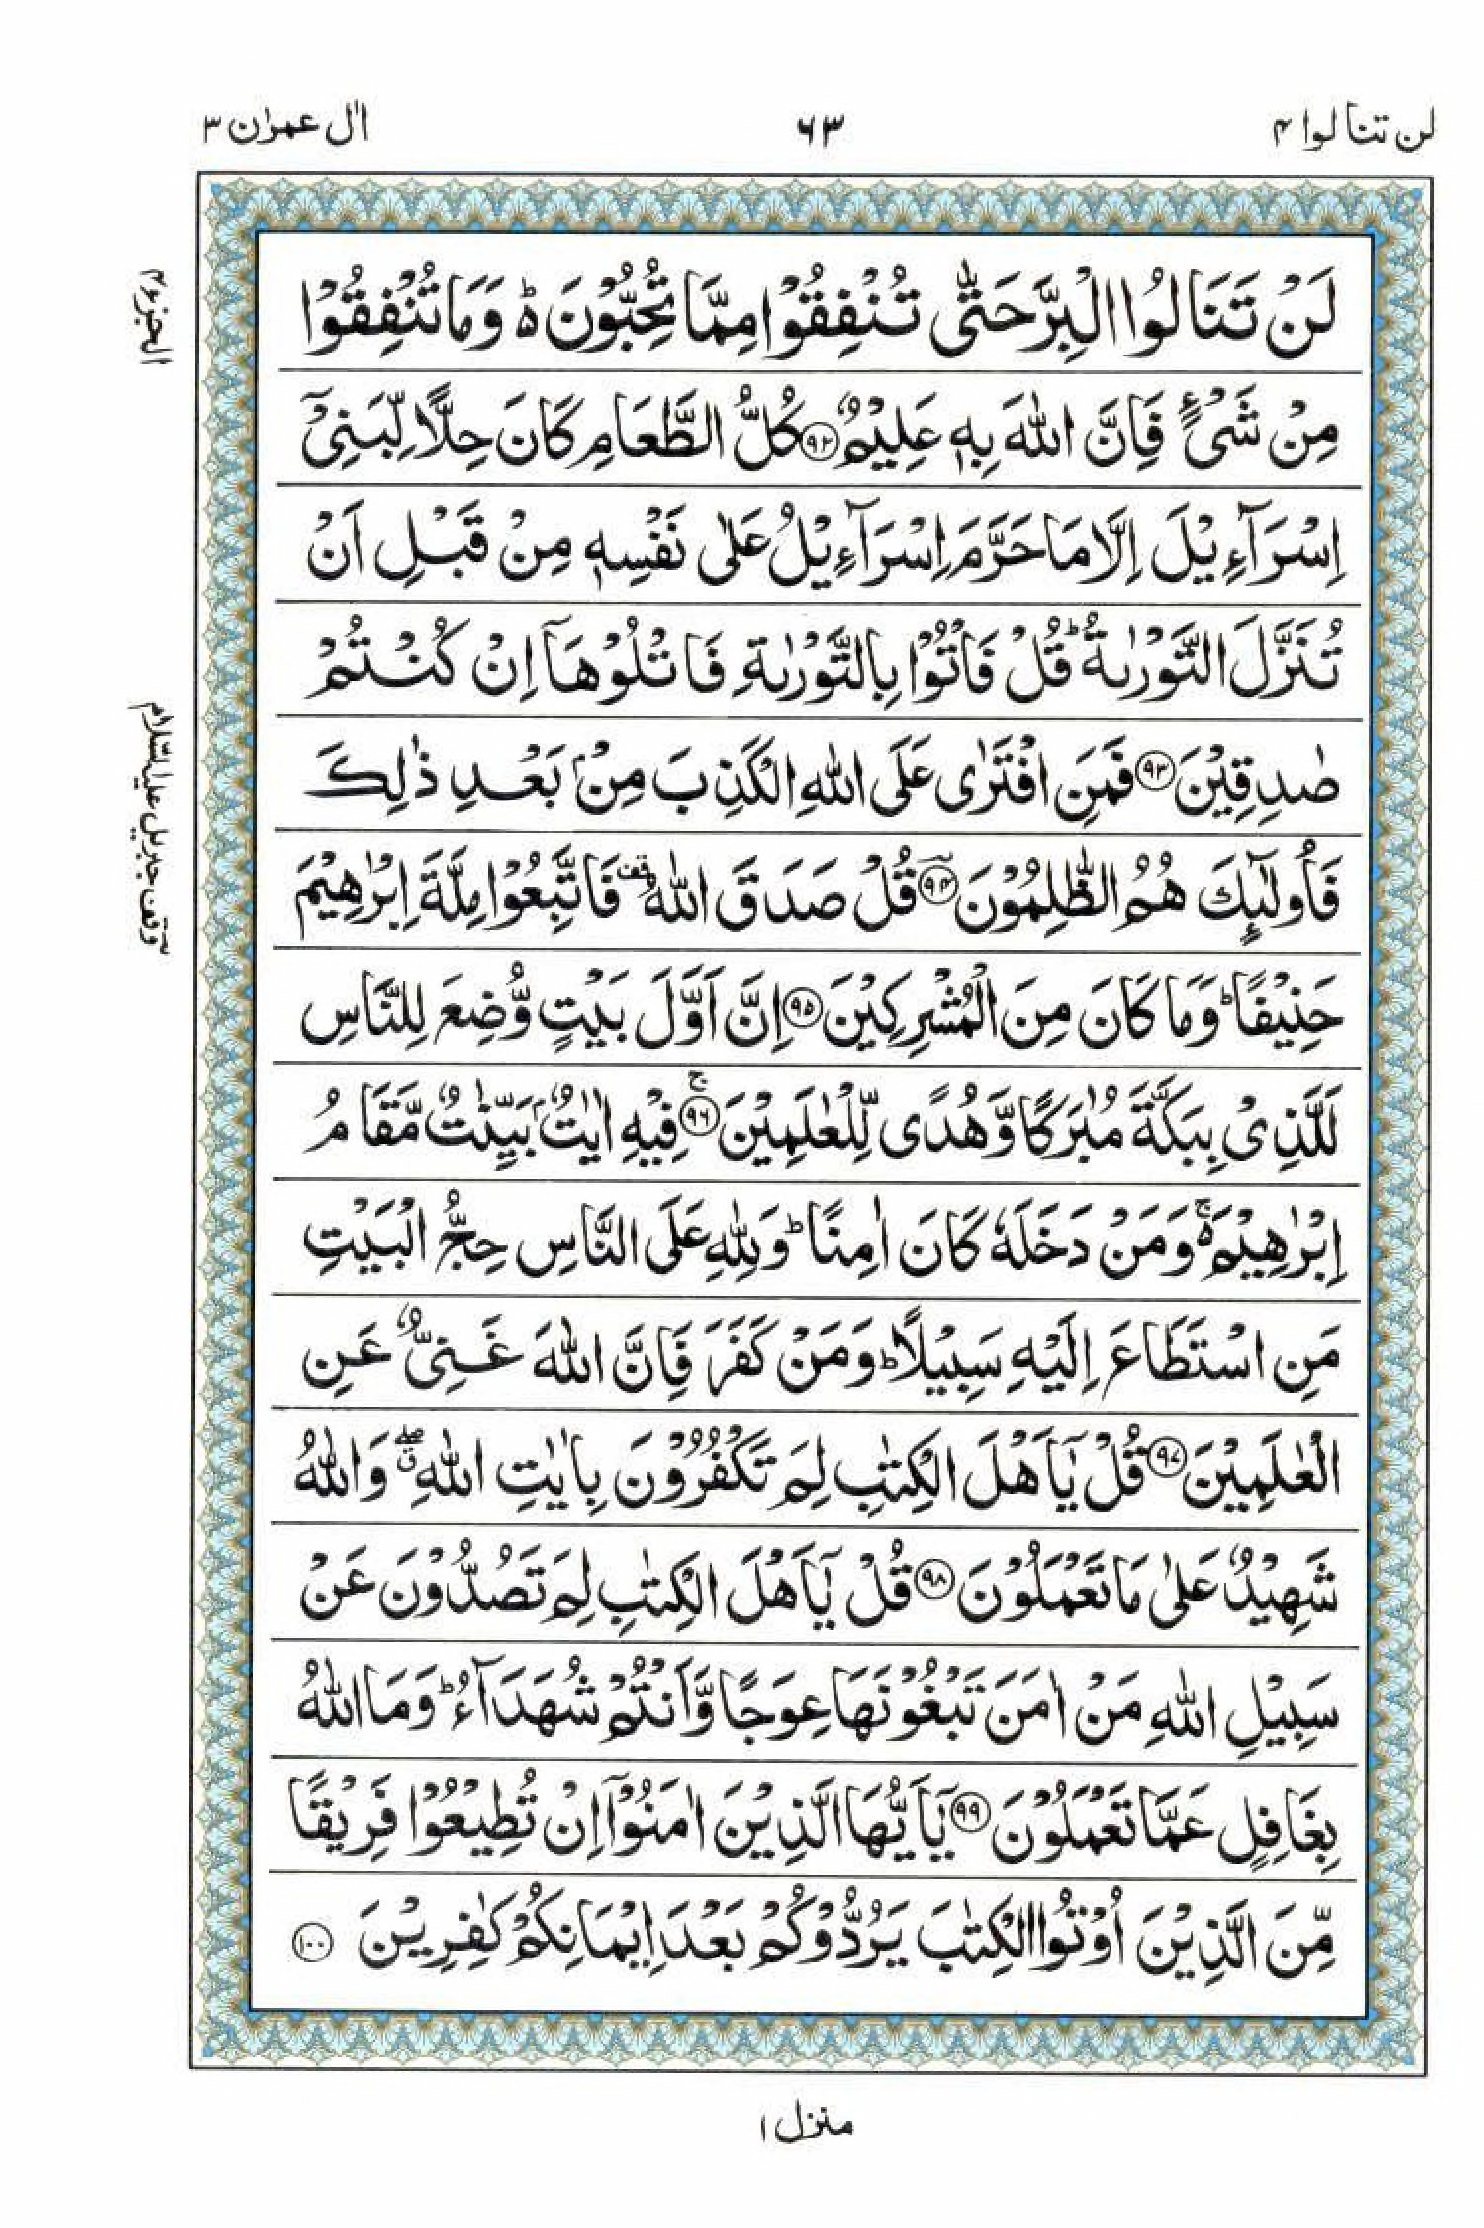 لن تنالوا ۴
۶۳
اٰل عمرٰن ۳
الجزو ۴
لَنْ تَنَالُوا الْبِرَّ حَتّٰى تُنْفِقُوْا مِمَّا تُحِبُّوْنَ ؕ۬ وَمَا تُنْفِقُوْا
مِنْ شَىْءٍ فَاِنَّ اللّٰهَ بِهٖ عَلِيْمٌ ﴿۹۲﴾ كُلُّ الطَّعَامِ كَانَ حِلًّا لِّبَنِىْۤ
اِسْرَآءِيْلَ اِلَّا مَا حَرَّمَ اِسْرَآءِيْلُ عَلٰى نَفْسِهٖ مِنْ قَبْلِ اَنْ
تُنَزَّلَ التَّوْرٰىةُ ؕ قُلْ فَاْتُوْا بِالتَّوْرٰىةِ فَاتْلُوْهَاۤ اِنْ كُنْتُمْ
صٰدِقِيْنَ ﴿۹۳﴾ فَمَنِ افْتَرٰى عَلَى اللّٰهِ الْكَذِبَ مِنْۢ بَعْدِ ذٰلِكَ
فَاُولٰٓئِكَ هُمُ الظّٰلِمُوْنَ ﴿۹۴﴾ قُلْ صَدَقَ اللّٰهُ ۟ فَاتَّبِعُوْا مِلَّةَ اِبْرٰهِيْمَ
حَنِيْفًا ؕ وَمَا كَانَ مِنَ الْمُشْرِكِيْنَ ﴿۹۵﴾ اِنَّ اَوَّلَ بَيْتٍ وُّضِعَ لِلنَّاسِ
لَلَّذِىْ بِبَكَّةَ مُبٰرَكًا وَّهُدًى لِّلْعٰلَمِيْنَ ۚ﴿۹۶﴾ فِيْهِ اٰيٰتٌۢ بَيِّنٰتٌ مَّقَامُ
اِبْرٰهِيْمَ ۚ۬ وَمَنْ دَخَلَهٗ كَانَ اٰمِنًا ؕ وَلِلّٰهِ عَلَى النَّاسِ حِجُّ الْبَيْتِ
مَنِ اسْتَطَاعَ اِلَيْهِ سَبِيْلًا ؕ وَمَنْ كَفَرَ فَاِنَّ اللّٰهَ غَنِىٌّ عَنِ
الْعٰلَمِيْنَ ﴿۹۷﴾ قُلْ يٰۤاَهْلَ الْكِتٰبِ لِمَ تَكْفُرُوْنَ بِاٰيٰتِ اللّٰهِ ۖق وَاللّٰهُ
شَهِيْدٌ عَلٰى مَا تَعْمَلُوْنَ ﴿۹۸﴾ قُلْ يٰۤاَهْلَ الْكِتٰبِ لِمَ تَصُدُّوْنَ عَنْ
سَبِيْلِ اللّٰهِ مَنْ اٰمَنَ تَبْغُوْنَهَا عِوَجًا وَّاَنْتُمْ شُهَدَآءُ ؕ وَمَا اللّٰهُ
بِغَافِلٍ عَمَّا تَعْمَلُوْنَ ﴿۹۹﴾ يٰۤاَيُّهَا الَّذِيْنَ اٰمَنُوْۤا اِنْ تُطِيْعُوْا فَرِيْقًا
مِّنَ الَّذِيْنَ اُوْتُوا الْكِتٰبَ يَرُدُّوْكُمْ بَعْدَ اِيْمَانِكُمْ كٰفِرِيْنَ ﴿۱۰۰﴾
وقف جبريل عليه السّلام
منزل ۱